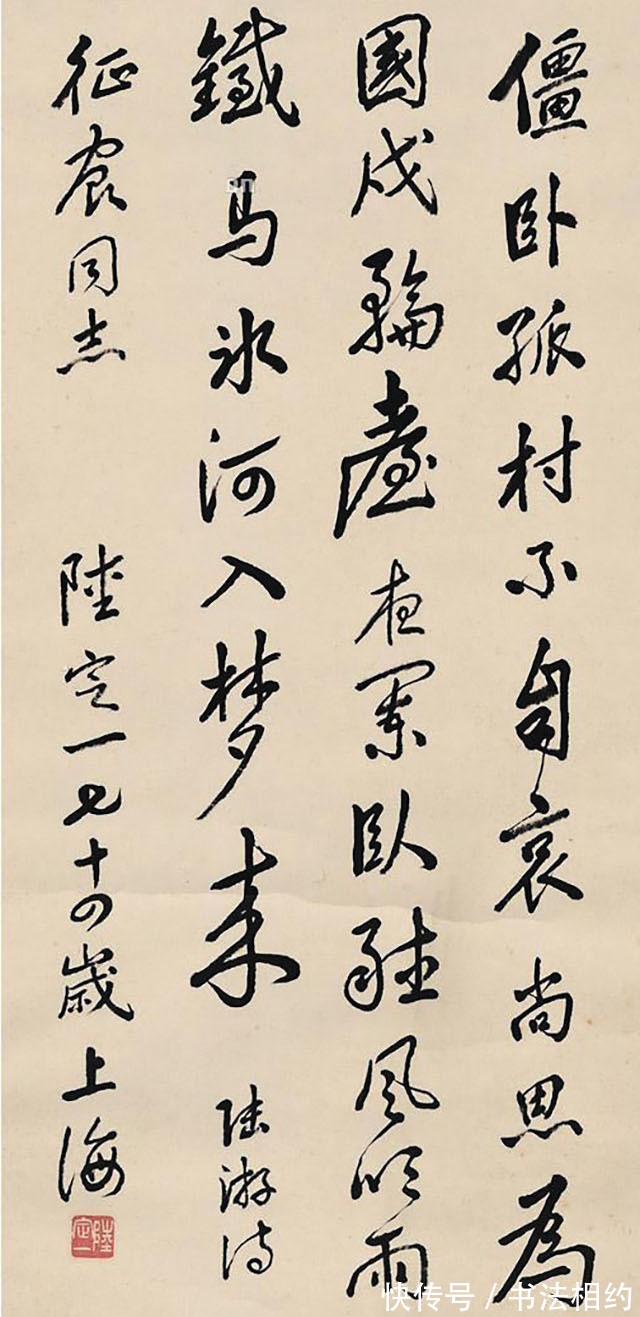 僵卧孤村不自哀尚思為
國戍輪臺夜闌臥聽風吹雨
鐵馬冰河入梦来 陆游诗
征农同志 陸定一七十四歲上海
陸定一
快传号 / 书法相约